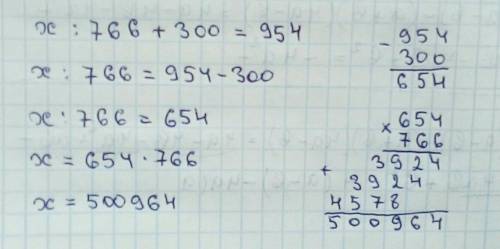 x : 766 + 300 = 954
x : 766 = 954 - 300
x : 766 = 654
x = 654 · 766
x = 500964
- 954
300
654
x 654
766
+ 3924
3924
4578
500964